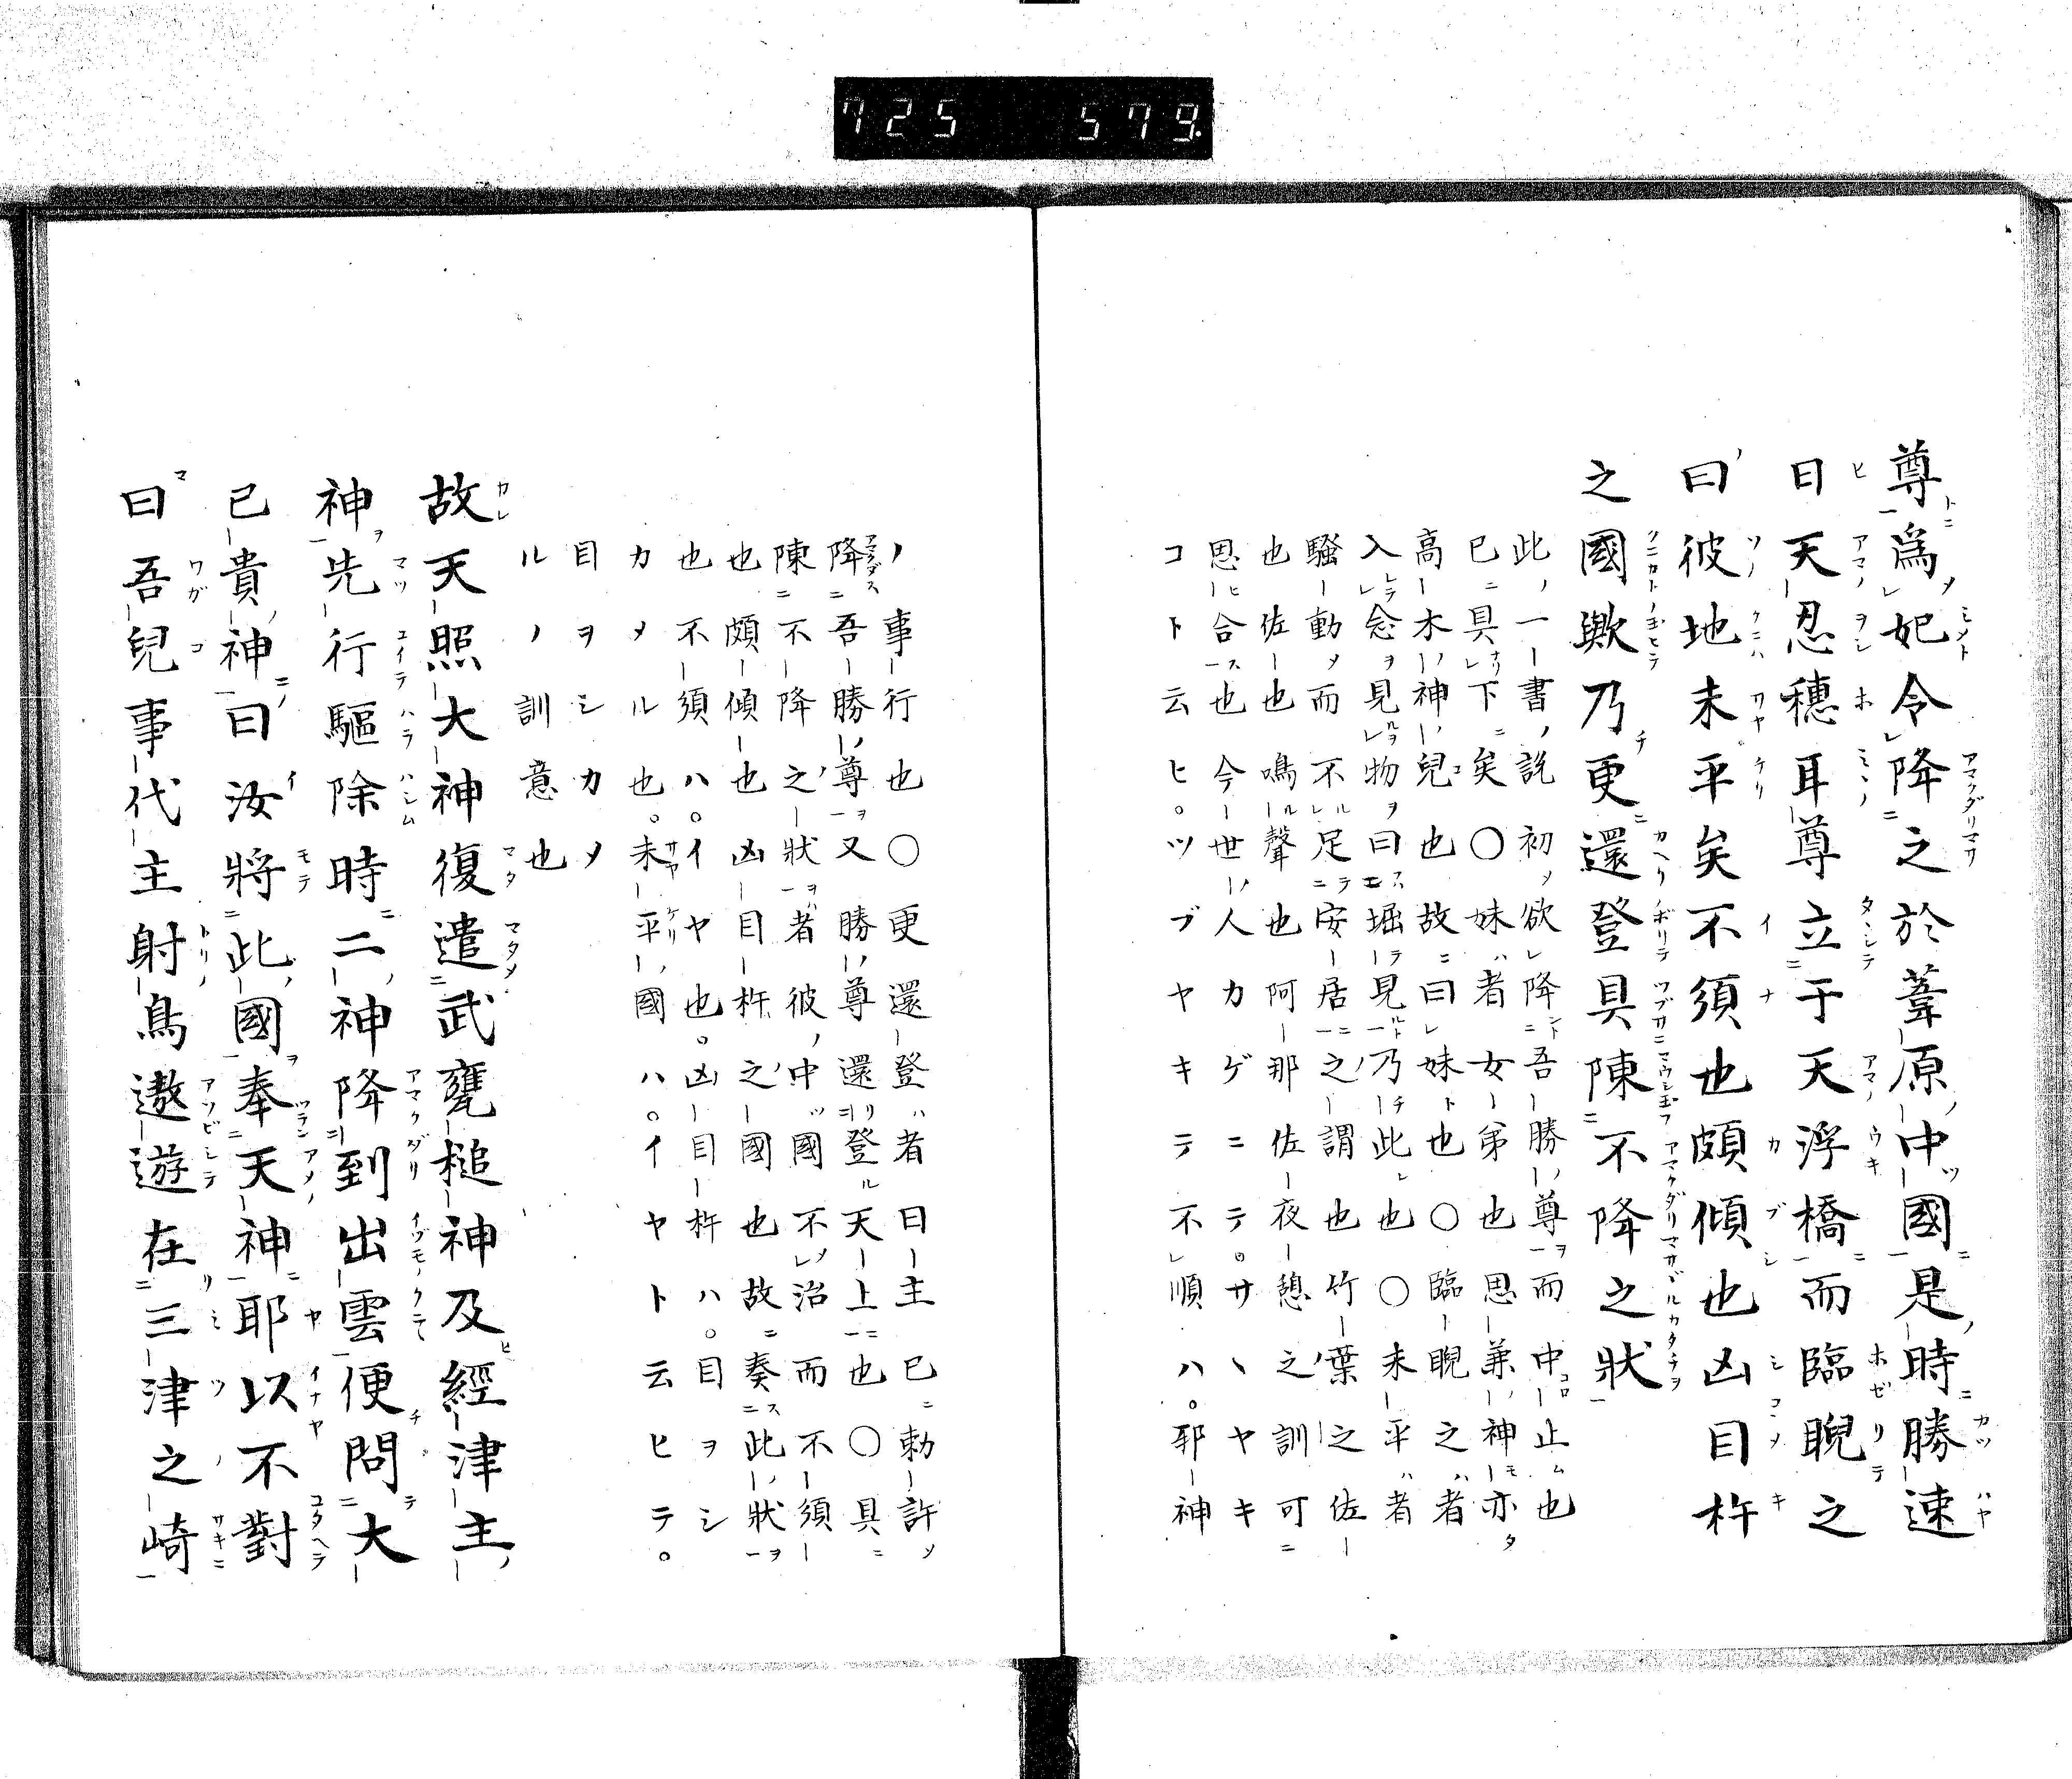 725 579.
尊爲妃令降之於葦原中國是時勝速
日天忍穗耳尊立于天浮橋而臨睨之
曰彼地未平矣不須也頗傾也凶目杵
之國歟乃更還登具陳不降之狀
此一書說初欲降吾勝尊而中止也
已具下矣〇妹者女弟也思兼神亦
高木神兒也故曰妹也〇臨睨之者
入念見物曰堀見乃此也〇未平者
騷動而不足安居之謂也竹葉之佐
也佐也鳴聲也阿那佐夜憩之訓可
思合也今世人カゲニテ。サヽヤキ
コト云ヒ。ツブヤキテ不順ハ。邪神
ノ事行也〇更還登者曰主已勅許
降吾勝尊又勝尊還登天上也〇具
陳不降之狀者彼中國不治而不須
也頗傾也凶目杵之國也故奏此狀
也不須ハ。イヤ也。凶目杵ハ。目ヲシ
カメル也。未平國ハ。イヤト云ヒテ。
目ヲシカメ
ルノ訓意也
故天照大神復遣武甕槌神及經津主
神先行驅除時二神降到出雲便問大
己貴神曰汝將此國奉天神耶以不對
曰吾兒事代主射鳥遨遊在三津之崎